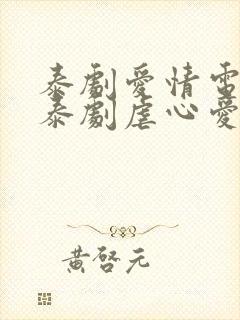 泰劇愛情電
泰劇虐心愛
黃啓元